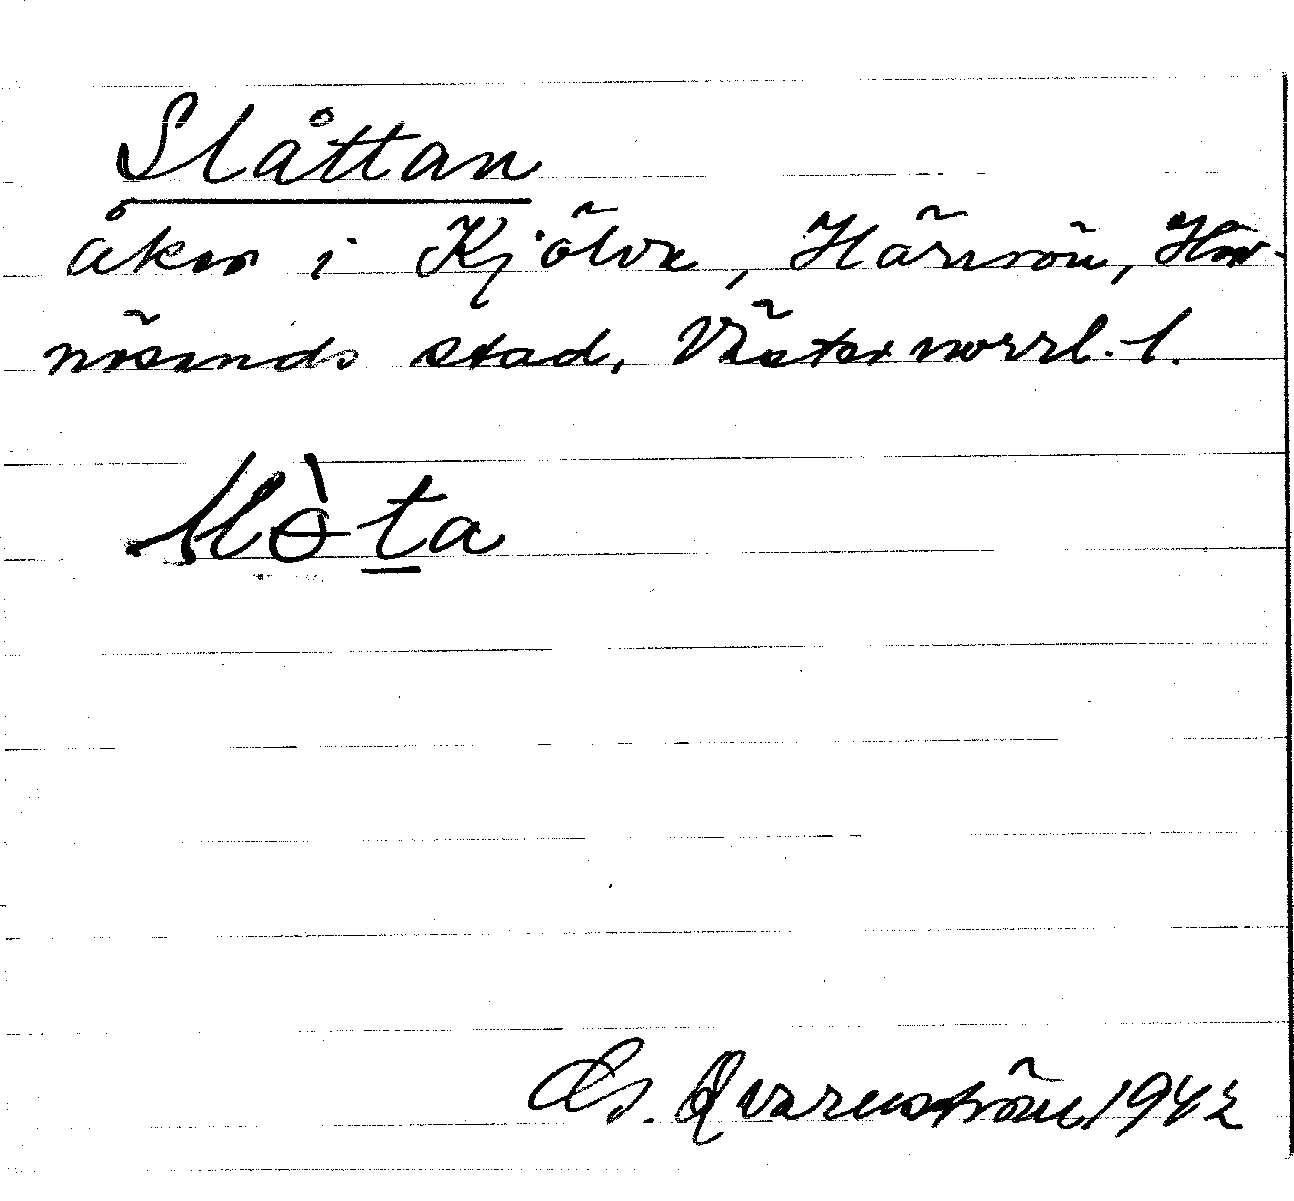 Slåttan
åker i Kjölva, Härnön, Här-
nösands stad, Västernorrl. l.
Cs. Qvarnström 1942